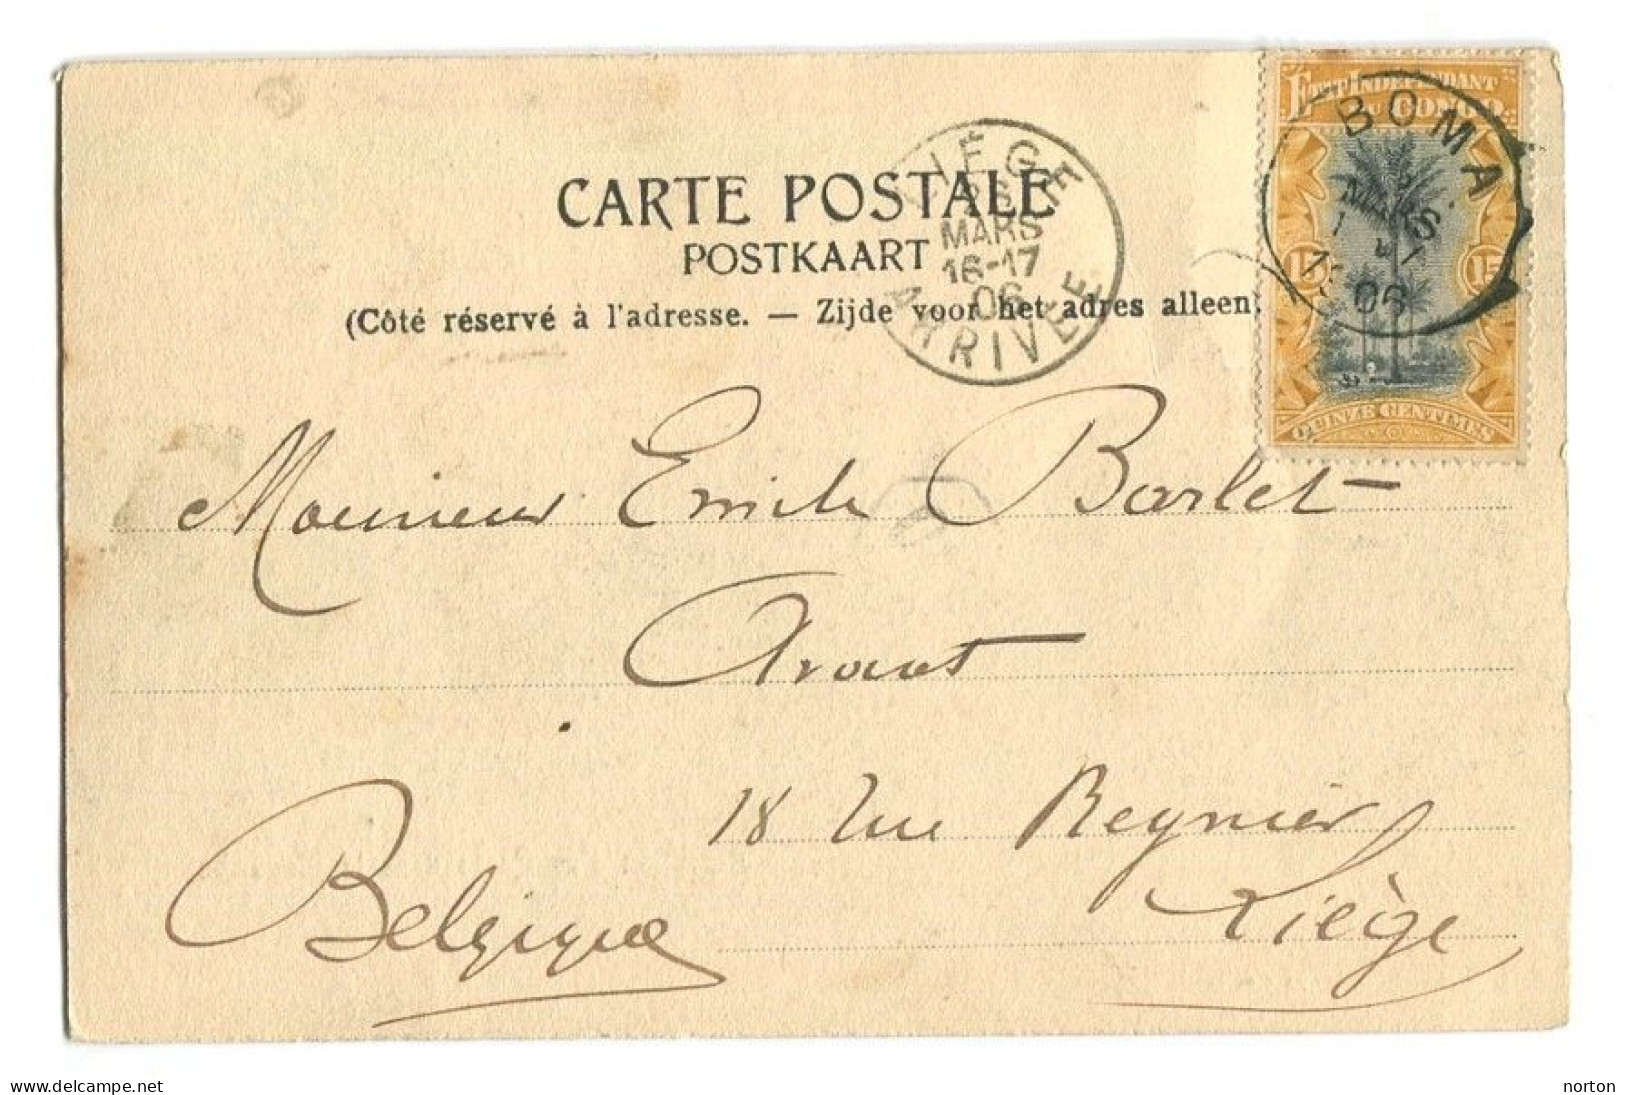 CARTE POSTALE
POSTKAART
(Côté réservé à l'adresse. — Zijde voor het adres alleen.
LIÉGE
MARS
16-17
06
ARRIVÉE
ETAT INDÉPENDANT
DU CONGO.
15 15
QUINZE CENTIMES
BOMA
MARS
06
Monsieur Emile Barlet
Avout
18 rue Reynier
Liège
Belgique
www.delcampe.net
norton